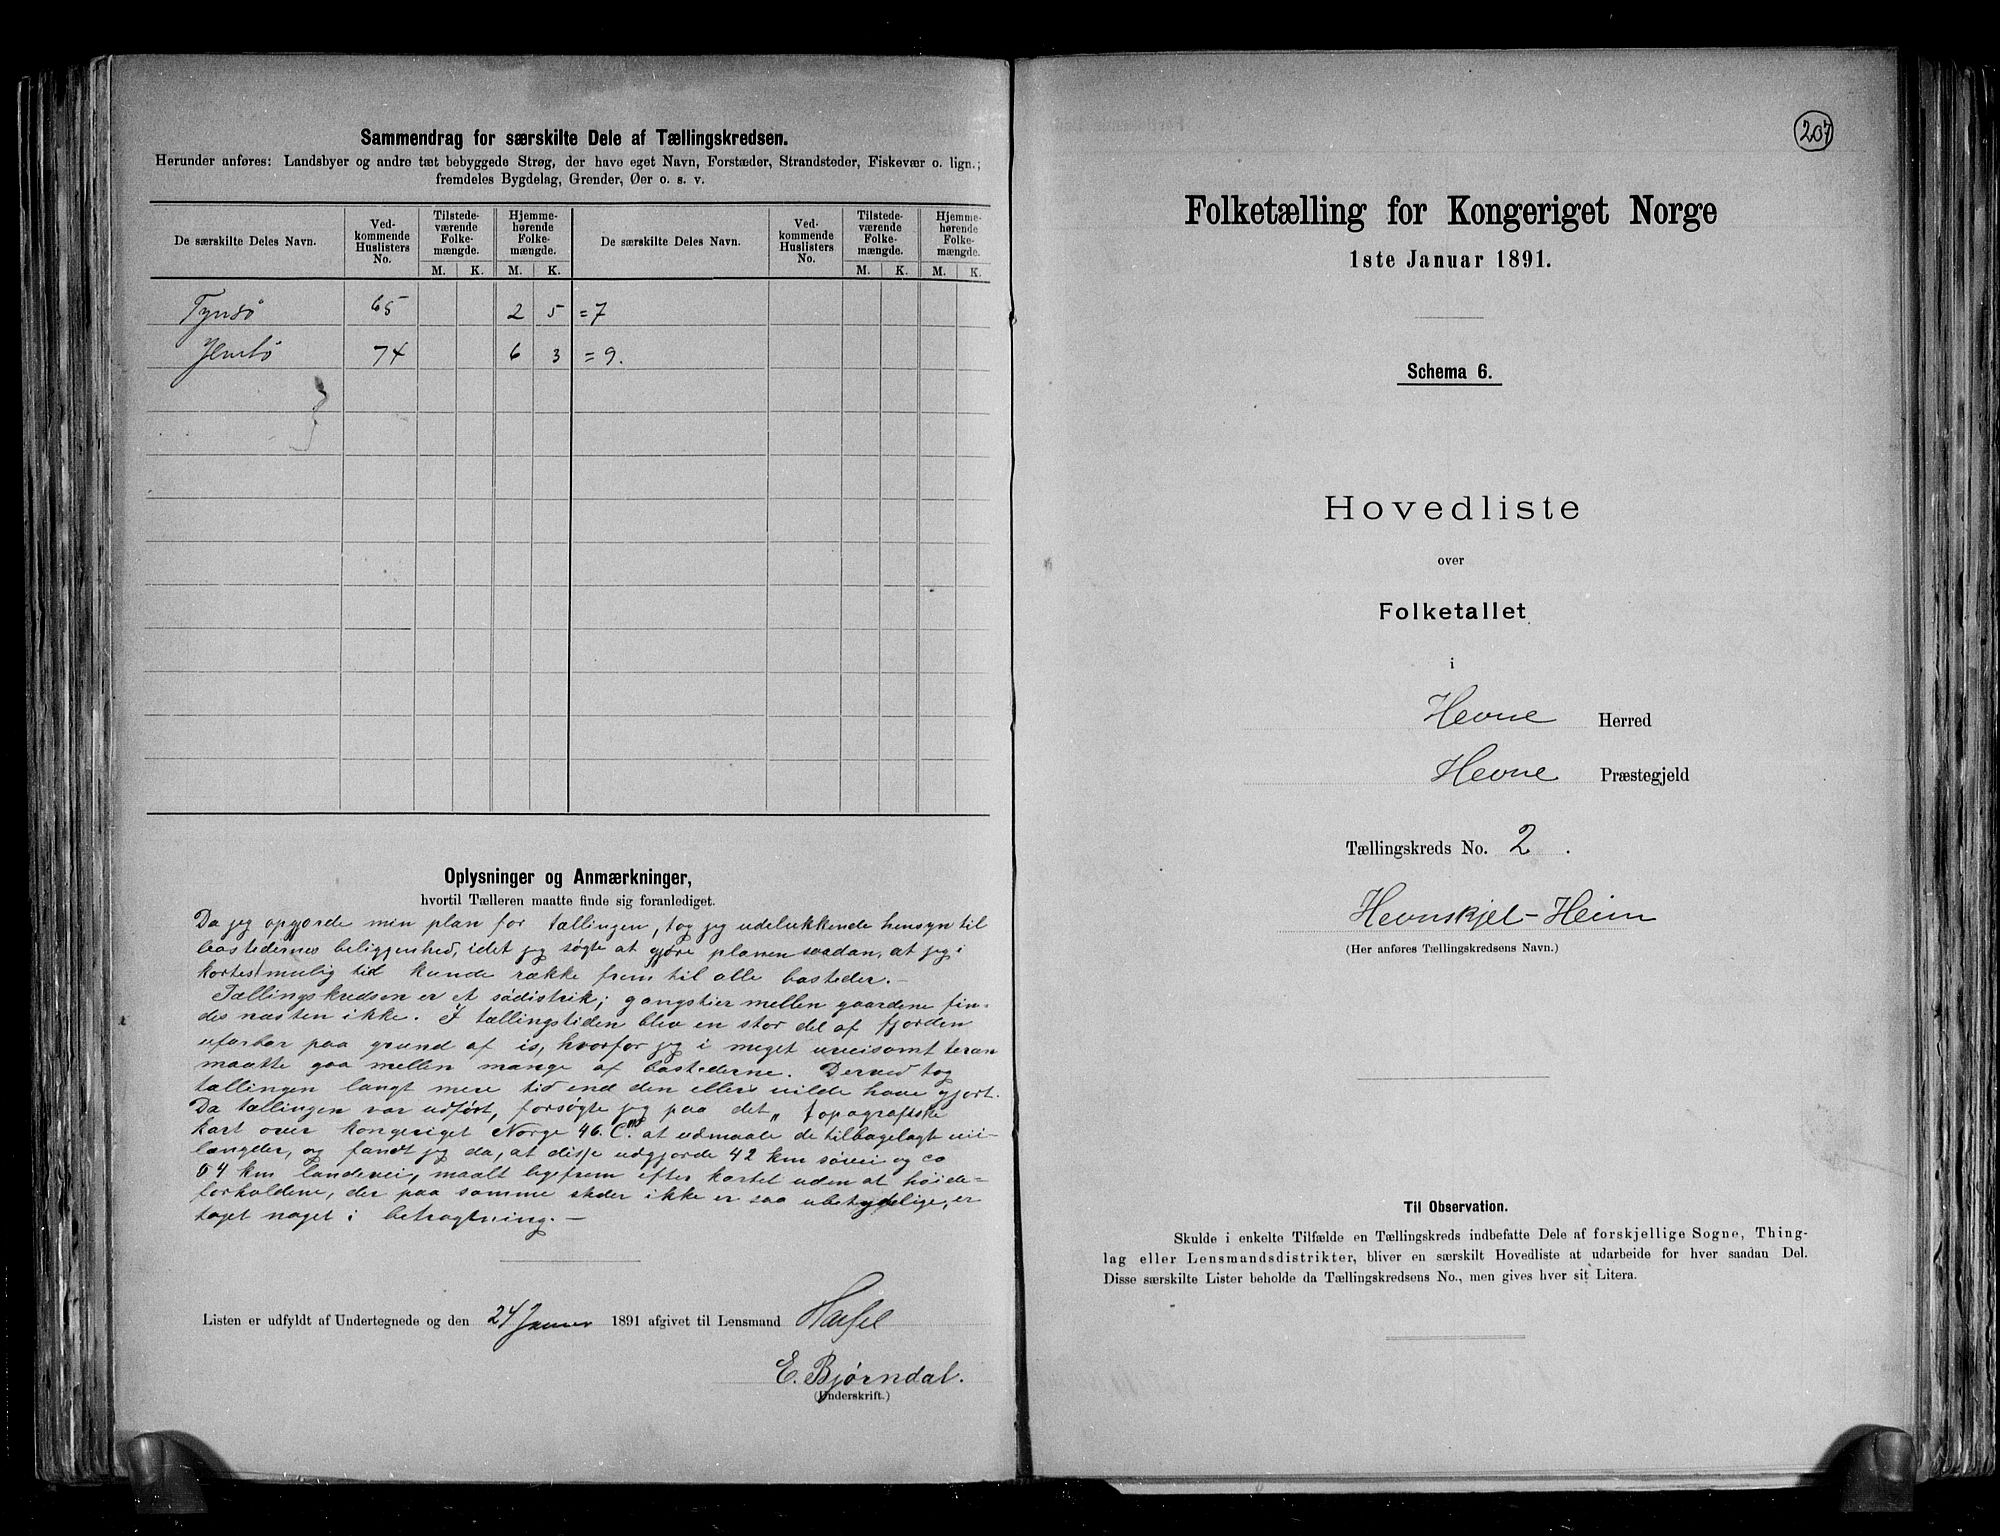 Sammendrag for særskilte Dele af Tællingskredsen.
Herunder anføres: Landsbyer og andre tæt bebyggede Strøg, der have eget Navn, Forstæder, Strandsteder, Fiskevær o. lign.;
fremdeles Bygdelag, Grender, Øer o. s. v.
De særskilte Deles Navn. Ved-kommende Huslisters No. Tilstede-værende Folke-mængde. Hjemme-hørende Folke-mængde. De særskilte Deles Navn. Ved-kommende Huslisters No. Tilstede-værende Folke-mængde. Hjemme-hørende Folke-mængde.
M. K. M. K. M. K. M. K.
65 2 5 =7
74 6 3 =9.
Oplysninger og Anmærkninger,
hvortil Tælleren maatte finde sig foranlediget.
Da jeg opgjorde min plan for tællingen, tog jeg udelukkende hensyn til
bostedernes beliggenhed, idet jeg søgte at gjøre planen saadan, at jeg i
kortest mulig tid kunde række frem til alle bosteder.-
Tællingskredsen er et sødistrik; gangstier mellen gaardene fin-
des næsten ikke. I tællingstiden blev en stor del af fjorden
ufarbar paa grund af is, hvorfor jeg i meget uveisomt teræn
maatte gaa mellen mange af bostederne. Derved tog
tællingen langt mere tid end den ellers vilde have gjort.
Da tællingen var udført, forsøgte jeg paa det „topografiske
kart over kongeriget Norge 46. C." at udmaale de tilbagelagte vei-
længder, og fandt jeg da, at disse udgjorde 42 km søvei og ca
64 km landevei, maalt ligefrem efter kartet uden at høide-
forholdene, der paa somme steder ikke er saa ubetydelige, er
taget noget i betragtning.-
Listen er udfyldt af Undertegnede og den 24 Januar 1891 afgivet til Lensmand
E. Bjørndal.
(Underskrift.)
207
Folketælling for Kongeriget Norge
1ste Januar 1891.
Schema 6.
Hovedliste
over
Folketallet
i
Hevne Herred
Hevne Præstegjeld
Tællingskreds No. 2.
Hevnskjel-Heim
(Her anføres Tællingskredsens Navn.)
Til Observation.
Skulde i enkelte Tilfælde en Tællingskreds indbefatte Dele af forskjellige Sogne, Thing-
lag eller Lensmandsdistrikter, bliver en særskilt Hovedliste at udarbeide for hver saadan Del.
Disse særskilte Lister beholde da Tællingskredsens No., men gives hver sit Litera.